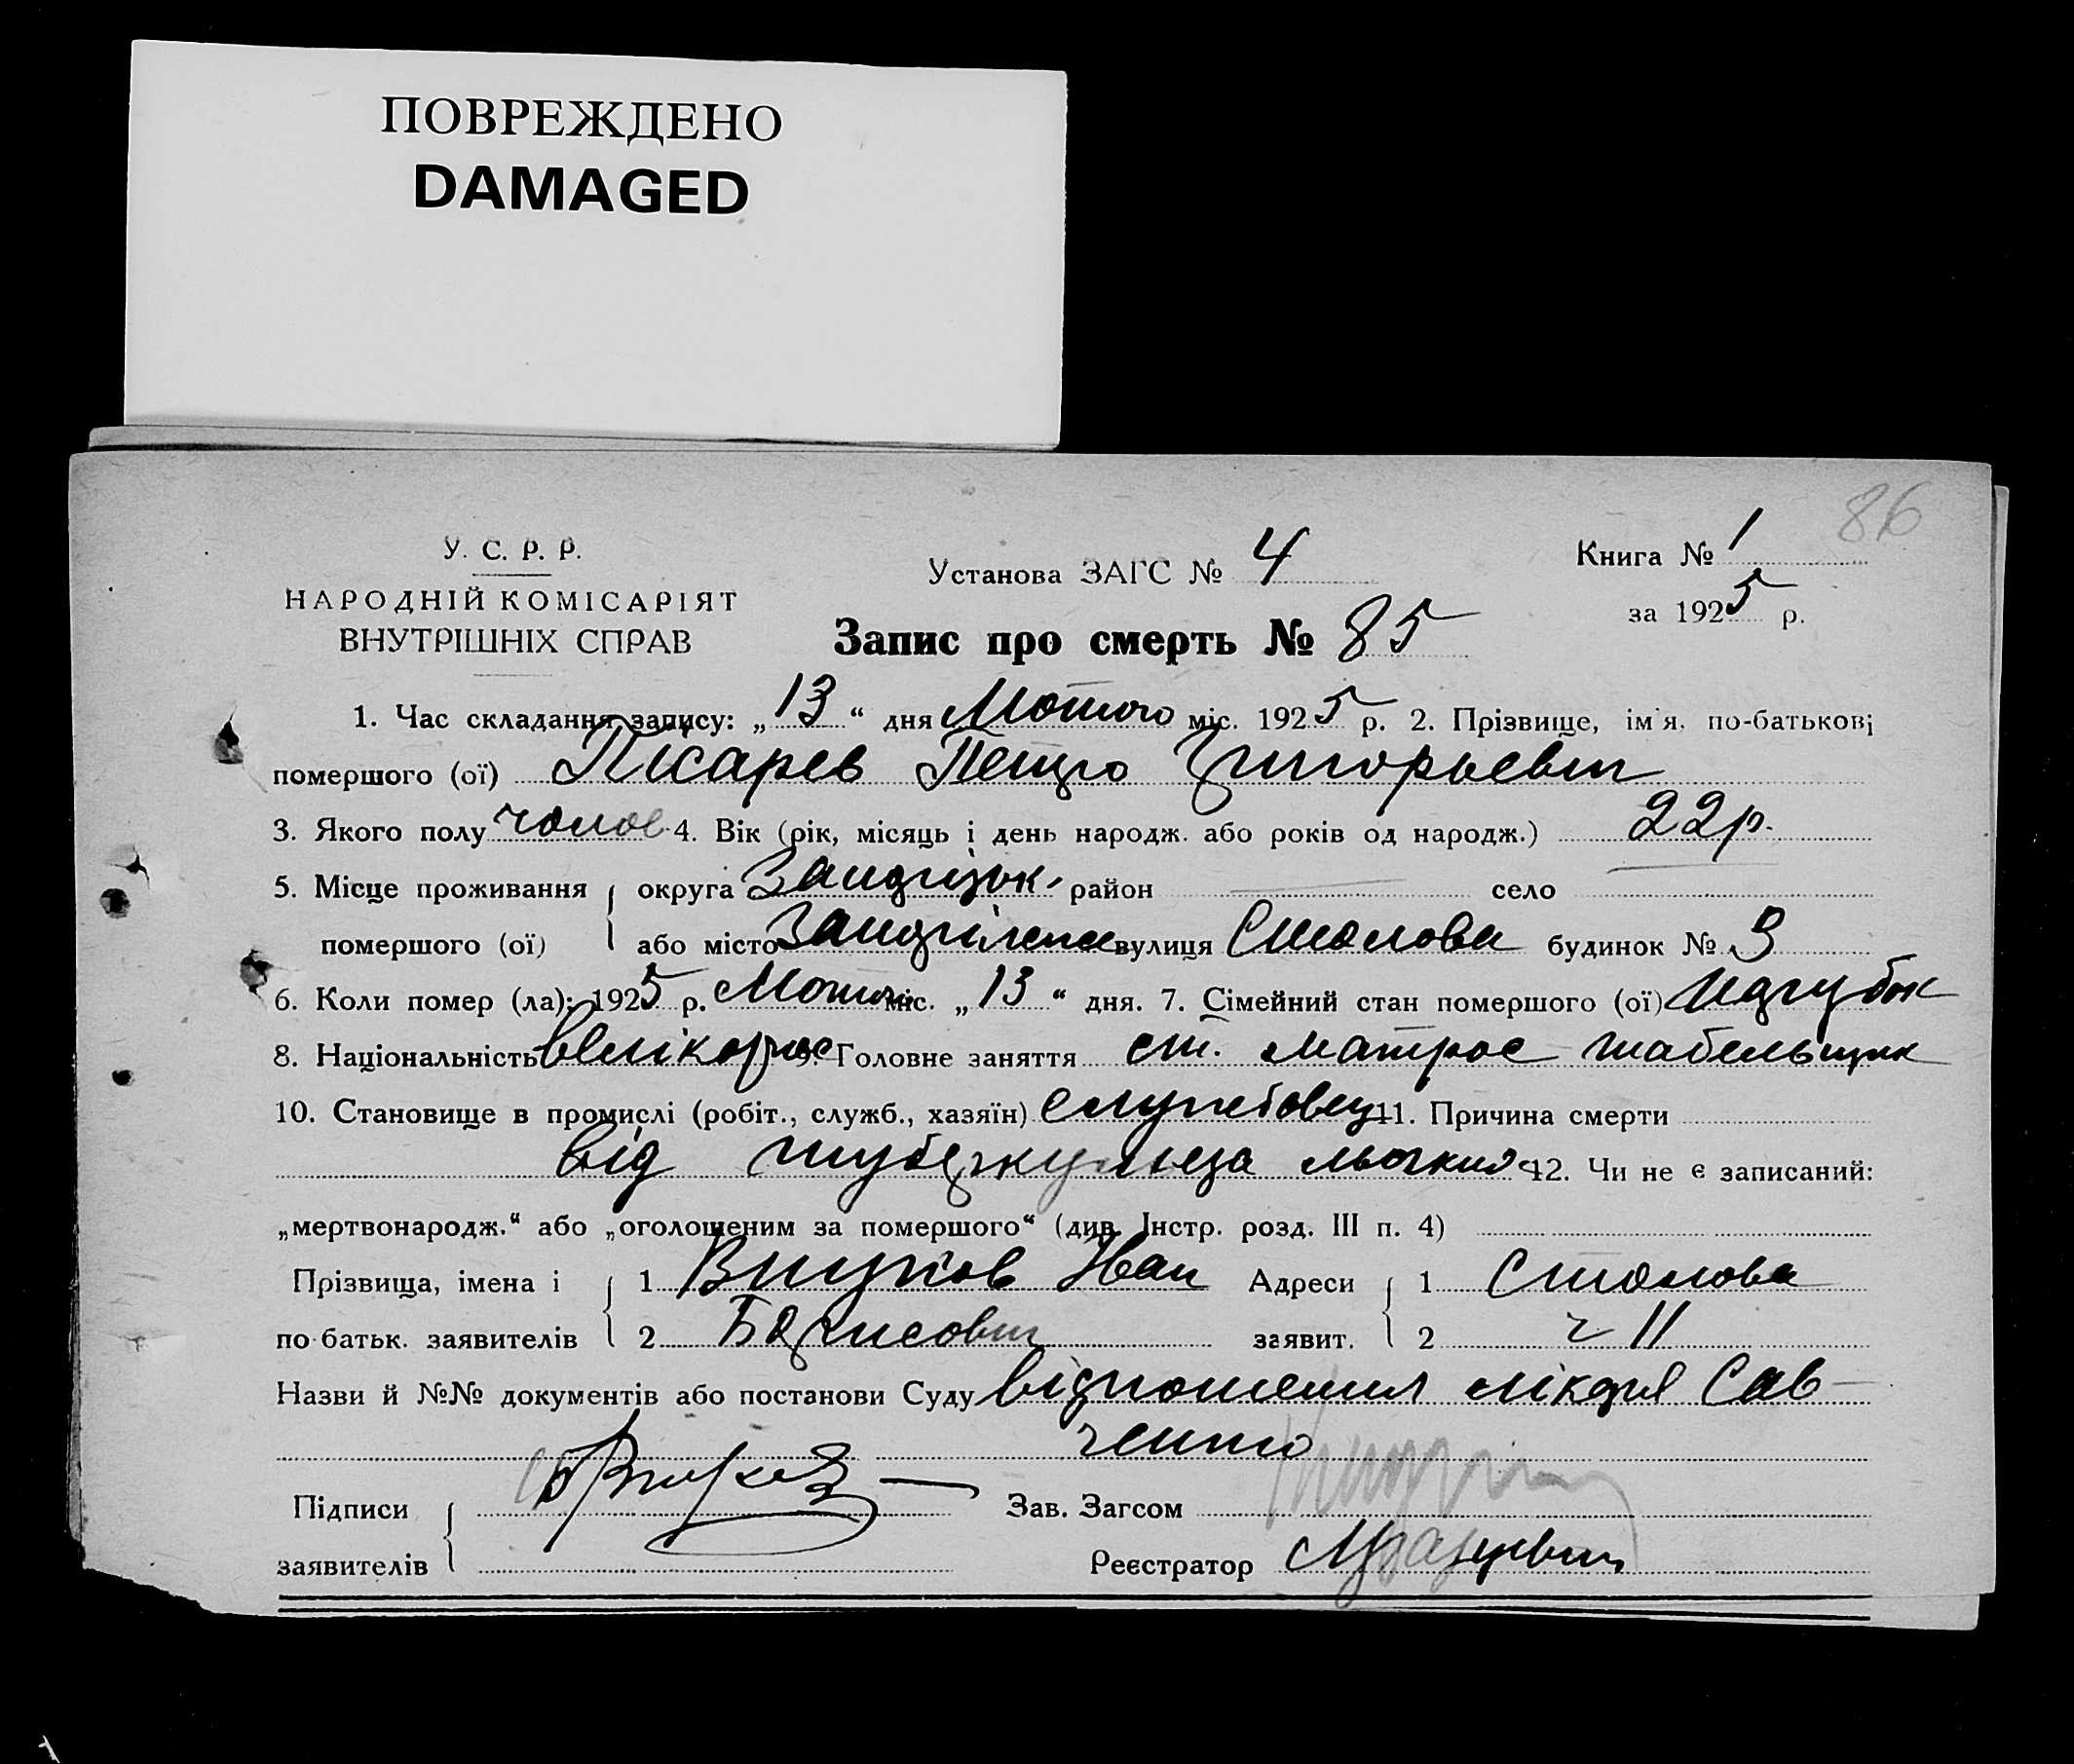 ПОВРЕЖДЕНО
DAMAGED
86
У. С. Р. Р.
НАРОДНІЙ КОМІСАРІЯТ
ВНУТРІШНІХ СПРАВ
Установа ЗАГС № 4
Книга № 1
за 1925 р.
Запис про смерть № 85
1. Час складання запису: „13“ дня Лютого міс. 1925 р. 2. Прізвище, ім'я, по-батькові
помершого (ої) Пісарев Петро Григорьевич
3. Якого полу чолов. 4. Вік (рік, місяць і день народж. або років од народж.) 22 р.
5. Місце проживання округа район село
помершого (ої) або місто вулиця Столова будинок № 9
6. Коли помер (ла): 1925 р. Лютого міс. „13“ дня. 7. Сімейний стан помершого (ої)
8. Національність велікорос 9. Головне заняття ст. матрос табельщик
10. Становище в промислі (робіт., служб., хазяїн) 11. Причина смерти
від туберкульоза 12. Чи не є записаний:
„мертвонародж.“ або „оголошеним за помершого“ (див. Інстр. розд. III п. 4)
Прізвища, імена і 1 Внуков Іван Адреси 1 Столова
по батьк. заявителів 2 Борисович заявит. 2 ч 11
Назви й №№ документів або постанови Суду відношення лікаря Сав-
ченко
Підписи Зав. Загсом
заявителів Реєстратор